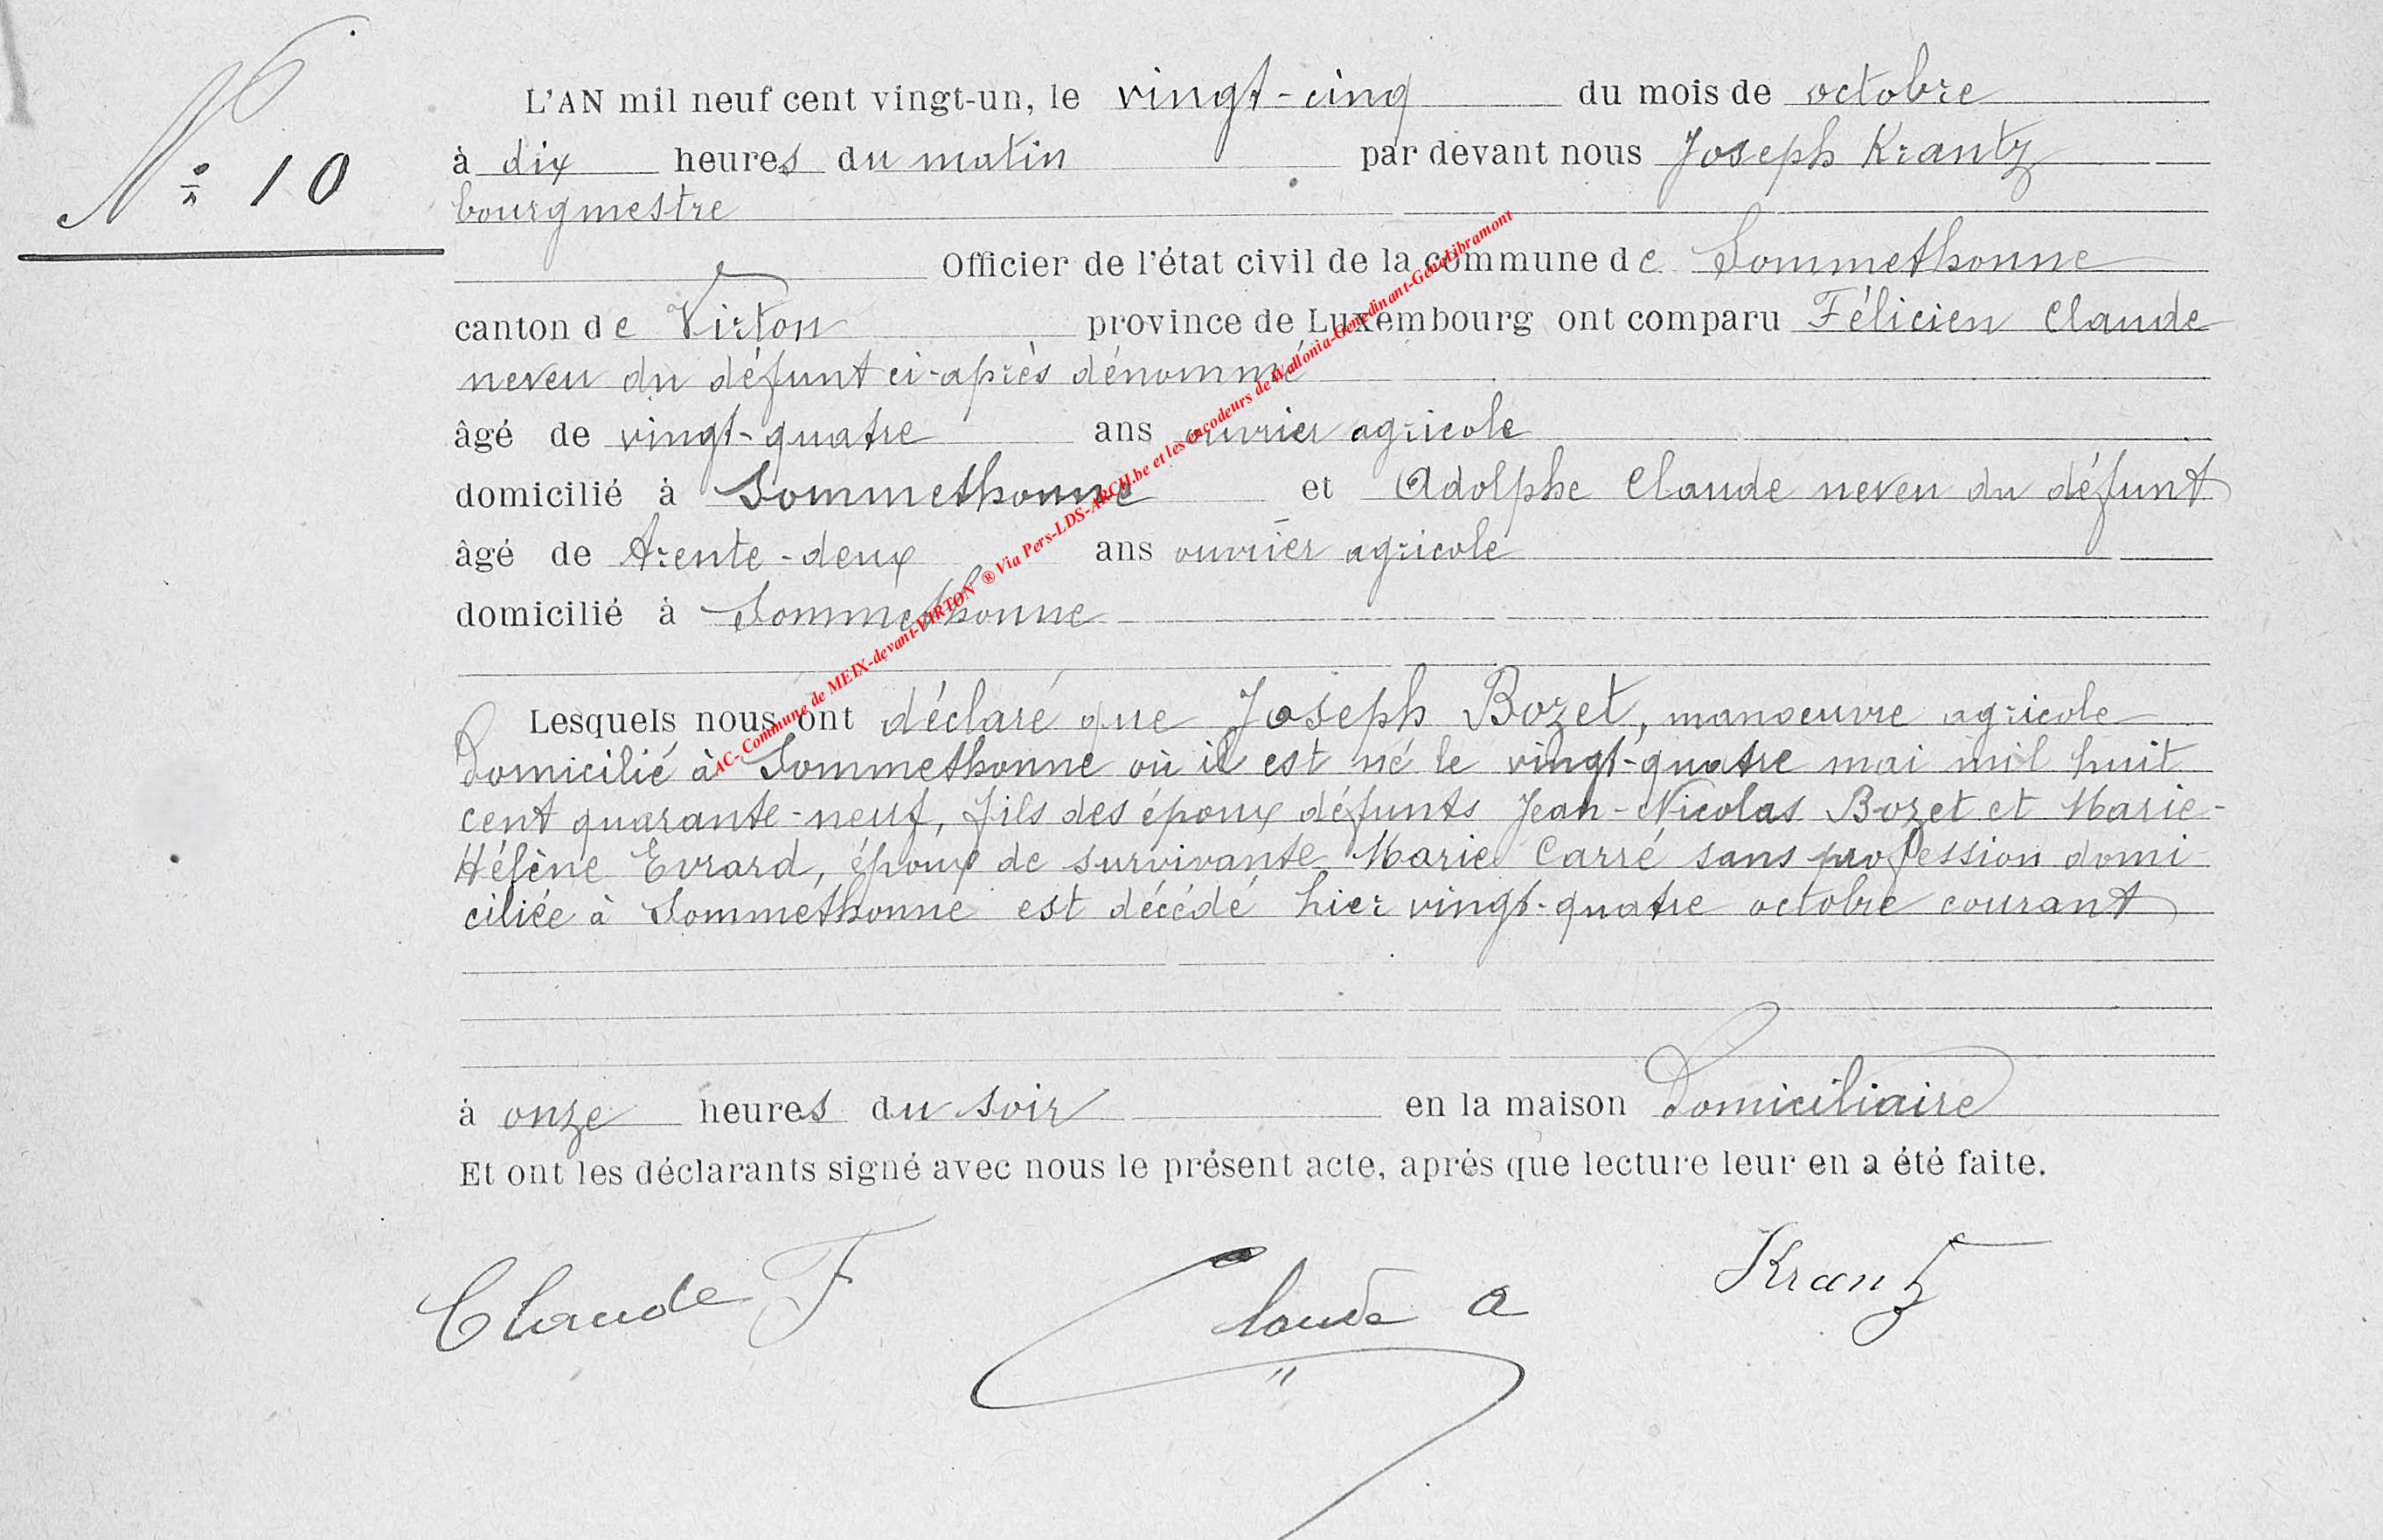 N° 10
L'AN mil neuf cent vingt-un, le vingt-cinq du mois de octobre
à dix heures du matin par devant nous Joseph Krantz
bourgmestre
Officier de l'état civil de la commune de Sommethonne
canton de Virton province de Luxembourg ont comparu Félicien Claude
neveu du défunt ci-après dénommé
âgé de vingt-quatre ans ouvrier agricole
domicilié à Sommethonne et Adolphe Claude neveu du défunt
âgé de trente-deux ans ouvrier agricole
domicilié à Sommethonne
Lesquels nous ont déclaré que Joseph Bozet, manoeuvre agricole
domicilié à Sommethonne où il est né le vingt-quatre mai mil huit
cent quarante-neuf, fils des époux défunts Jean-Nicolas Bozet et Marie-
Hélène Evrard, époux de survivante Marie Carré sans profession domi-
ciliée à Sommethonne est décédé hier vingt-quatre octobre courant
à onze heures du soir en la maison domiciliaire
Et ont les déclarants signé avec nous le présent acte, après que lecture leur en a été faite.
Claude F Claude A Krantz
AC- Commune de MEIX-devant-VIRTON ® Via Pers-LDS-ARCH.be et les encodeurs de Wallonia-Genedinant-GeneLibramont